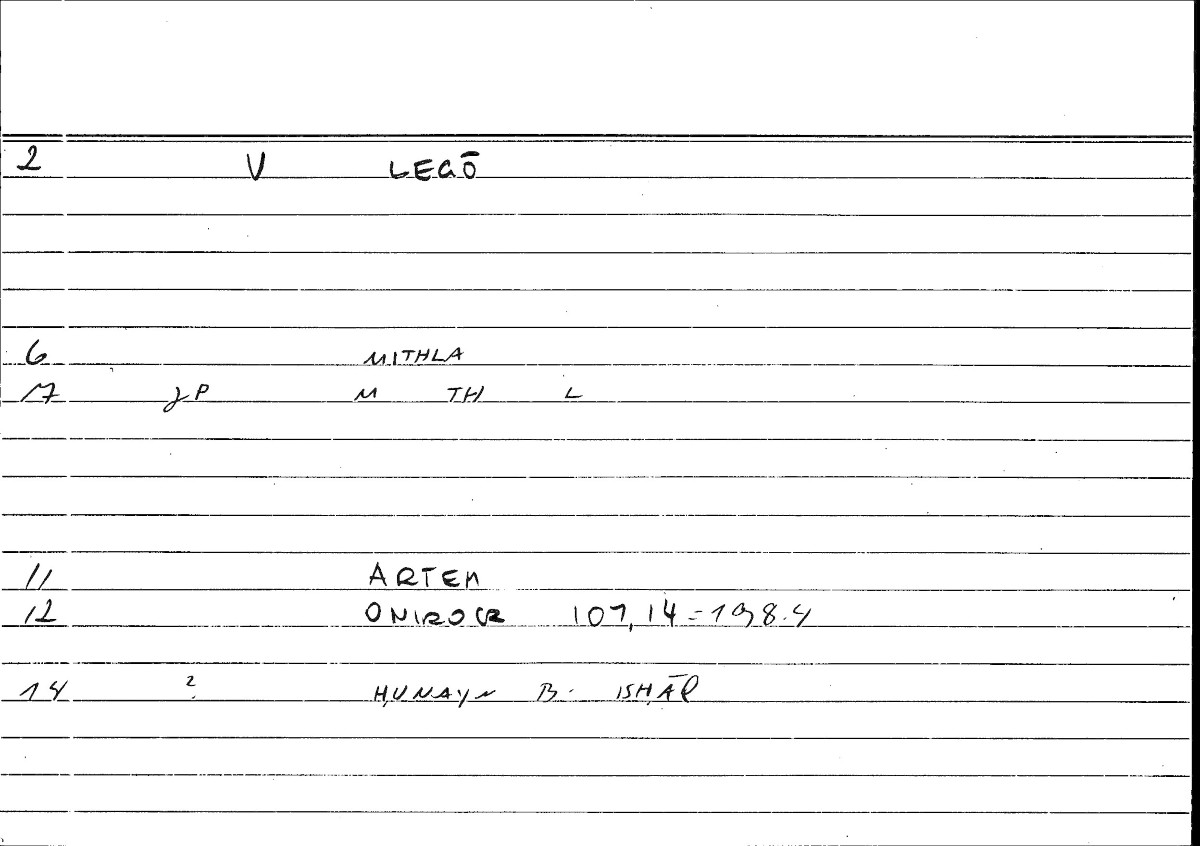 2 V LEGŌ
6 MITHLA
17 JP M TH L
11 ARTEM
12 ONIROCR 107,14=198.4
14 ? ḤUNAYN B. ISḤĀQ